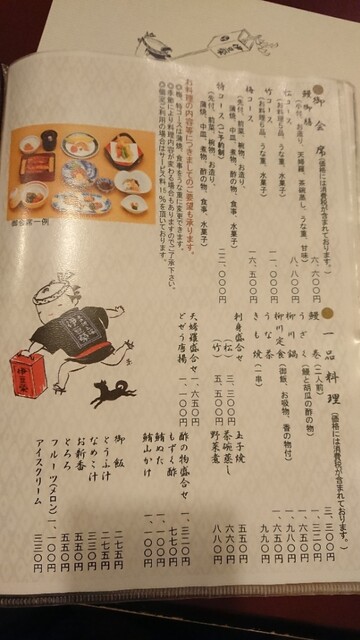 ●御会席(価格には消費税が含まれております。)
鰻御膳 六、六〇〇円
(や付、お造り、天婦羅、茶碗蒸し、うな重、甘味)
松コース 八、八〇〇円
(お料理6品、うな重、水菓子)
竹コース 一一、〇〇〇円
(お料理7品、うな重、水菓子)
梅コース 一六、五〇〇円
(先付、前菜、椀物、お造り、
蒲焼、中皿、煮物、酢の物、うな重、水菓子)
特コース(ご予約制) 二二、〇〇〇円
(先付、前菜、椀物、お造り、
蒲焼、中皿、煮物、酢の物、食事、水菓子)
お料理の内容等につきましてのご要望も承ります。
◎梅、特コースは蒲焼、食事をうな重に変更できます。
◎季節により料理内容が変わる場合もありますのでご了承下さい。
◎個室ご利用の場合はサービス料15%を頂いております。
御会席一例
●一品料理(価格には消費税が含まれております。)
鰻巻(二人前) 三、三〇〇円
うざく(鰻と胡瓜の酢の物) 一、三二〇円
柳川鍋 一、六五〇円
柳川定食(御飯、お吸物、香の物付) 一、九八〇円
うな茶 一、六五〇円
きも焼(一串) 九九〇円
刺身盛合せ
(松) 三、三〇〇円
(竹) 五、五〇〇円
天婦羅盛合せ 一、六五〇円
どぜう唐揚 一、一〇〇円
玉子焼 五五〇円
茶碗蒸し 六六〇円
野菜煮 八八〇円
酢の物盛合せ 一、三二〇円
もずく酢 七七〇円
鮪ぬた 一、一〇〇円
鮪山かけ 一、一〇〇円
御飯 二七五円
とうふ汁 二七五円
なめこ汁 三三〇円
お新香 五五〇円
とろろ 五五〇円
フルーツ(メロン) 一、一〇〇円
アイスクリーム 三三〇円
伊豆榮